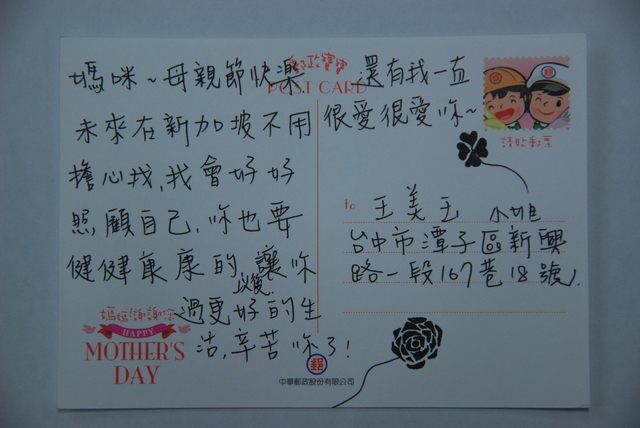 郵政寶寶
POST CARD
媽咪~母親節快樂
未來在新加坡不用
擔心我,我會好好
照顧自己,妳也要
健健康康的 讓妳
以後
過更好的生
活,辛苦妳了!
還有我一直
很愛很愛妳~
請貼郵票
to 王美玉 小姐
台中市潭子區新興
路一段167巷18號.
媽媽!謝謝您
HAPPY
MOTHER'S
DAY
郵
中華郵政股份有限公司